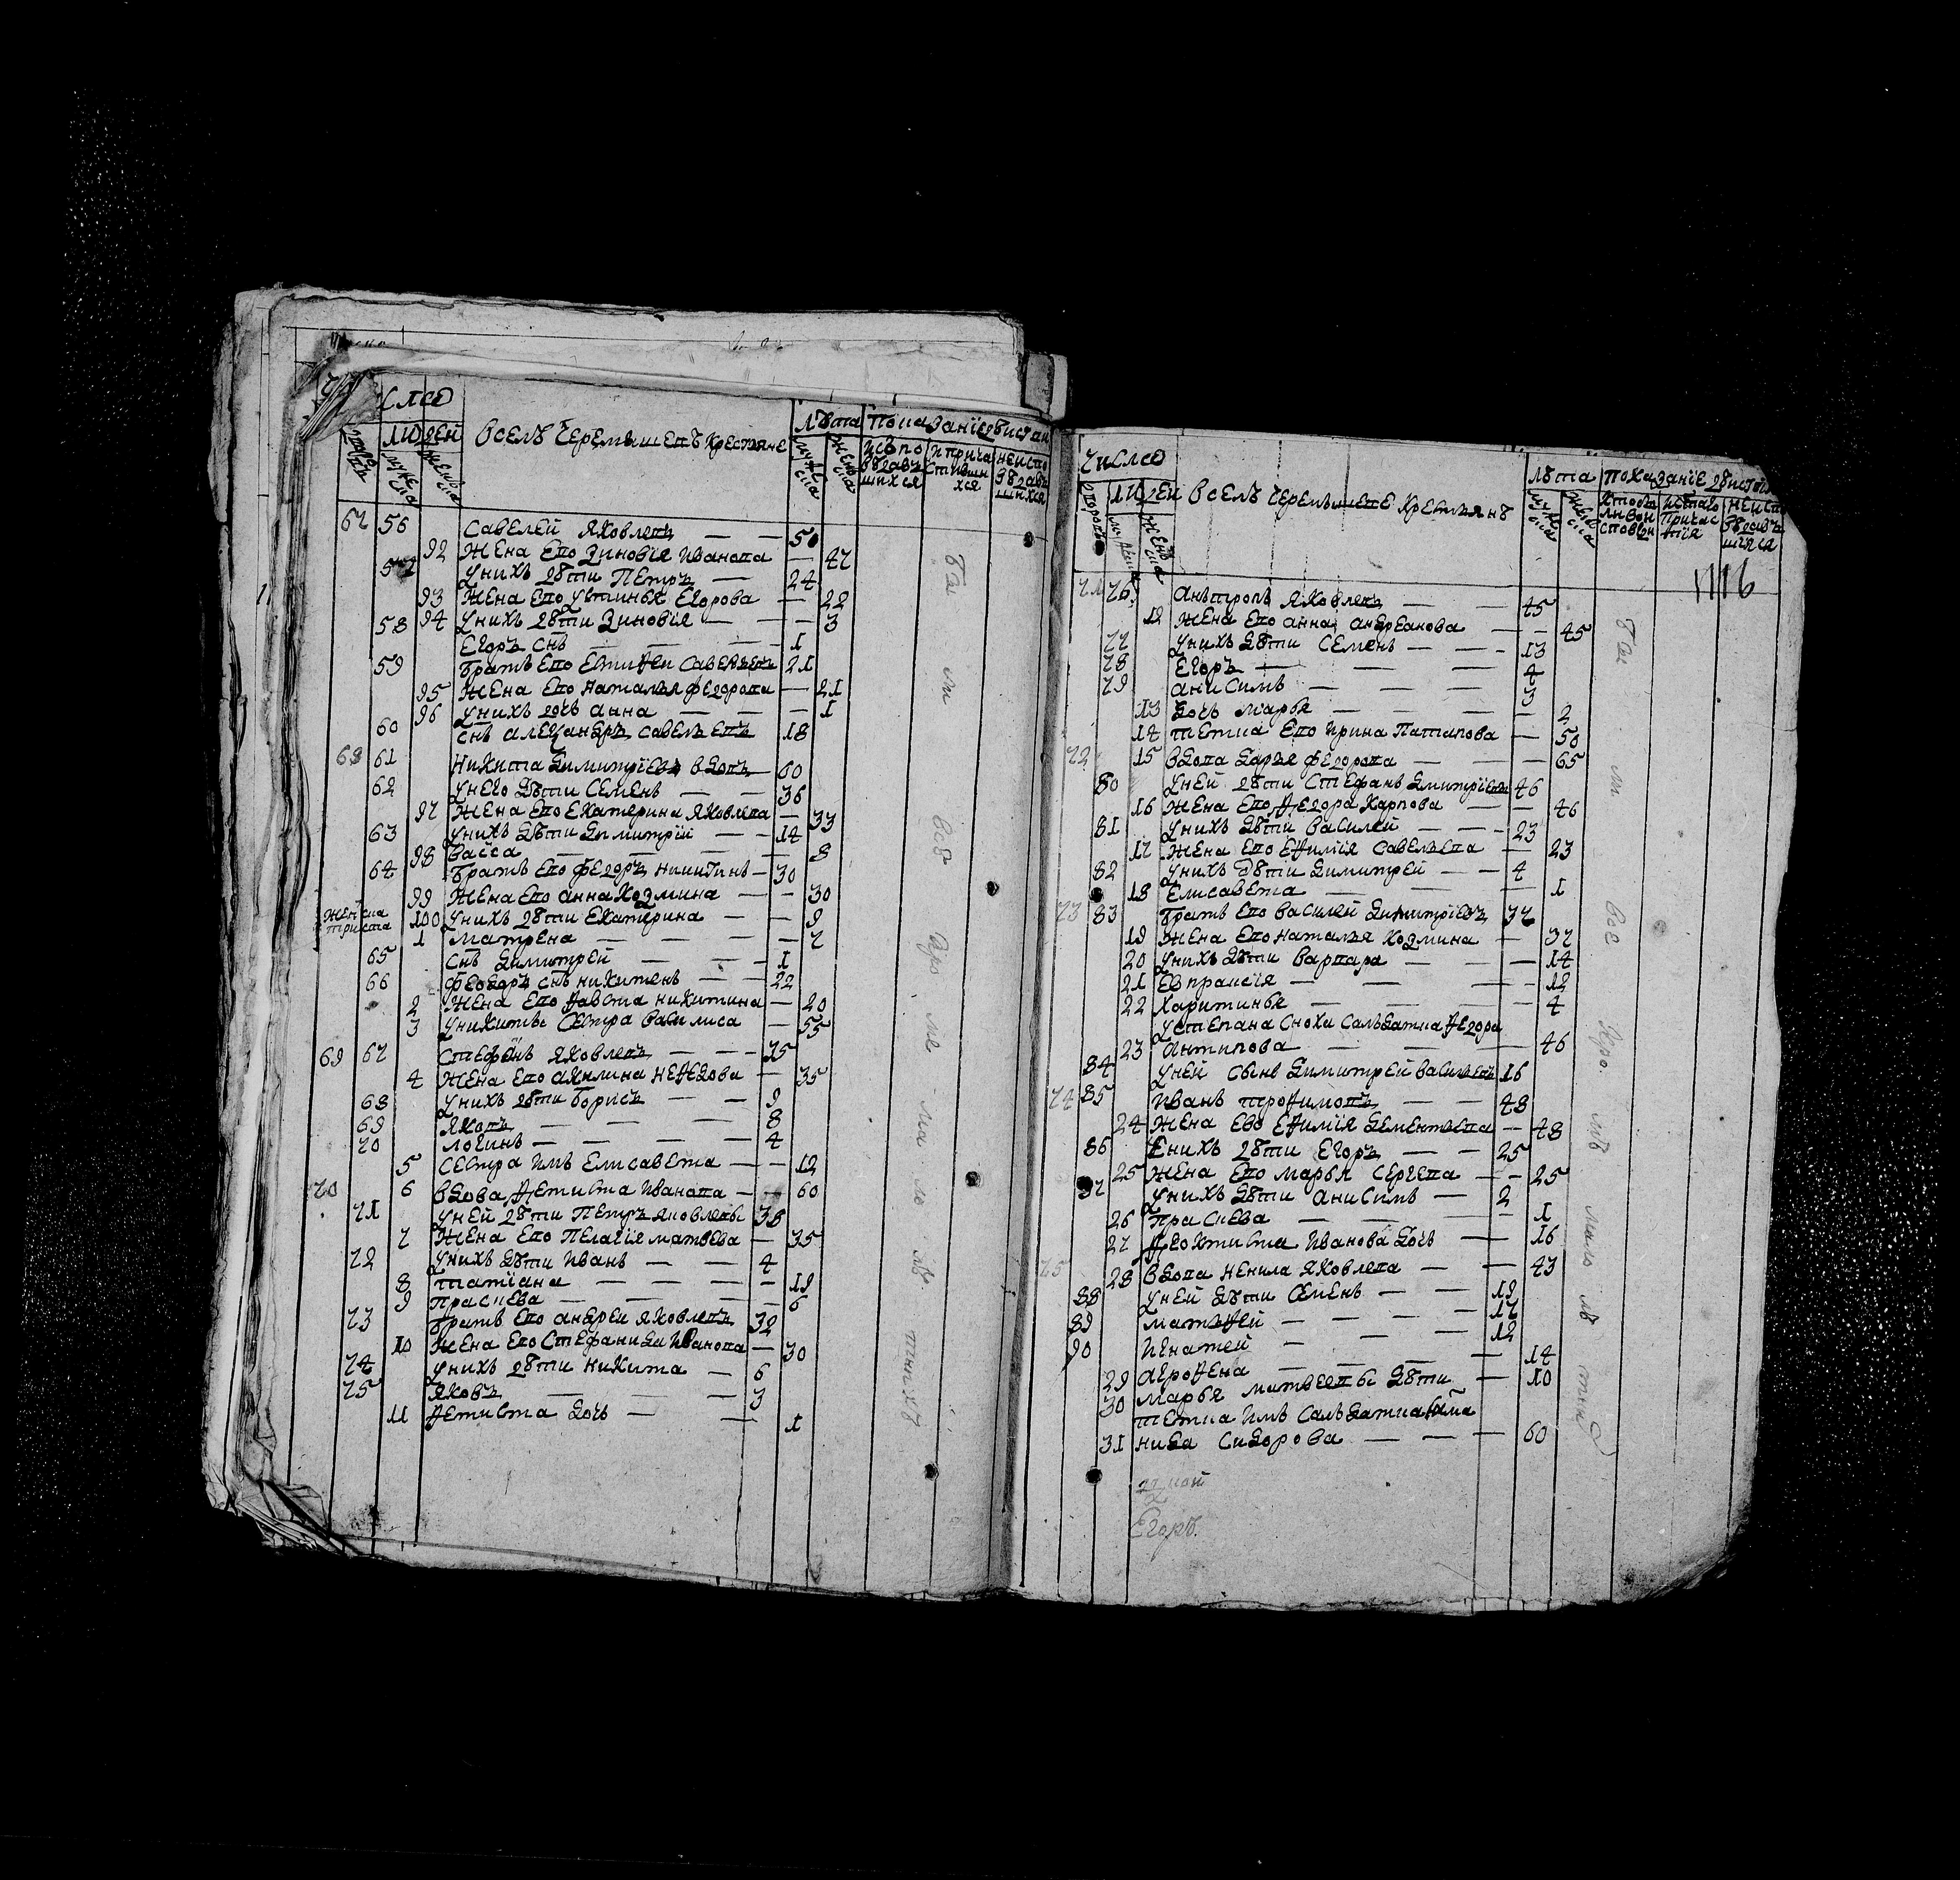 число
людей
вселѣ Черемышевѣ крестьяне
лѣта
показание действ
испо
вѣдавъ
шихся
и прича
стивши
хся
неиспо
вѣдавъ
шихся
67 56 Савелей Яковлевъ — — 50
92 жена ево Зиновїя Иванова — 47
57 У нихъ дѣти Петръ — 24
93 жена ево Устинья Егорова — 22
94 У нихъ дѣти Зиновїя — — 3
58 Егоръ снъ — — — 1
59 братъ ево Евтифеи Савельевъ 21
95 жена ево Наталья Федорова — 21
96 У нихъ дочь Анна — — — 1
60 снъ Александръ Савельевъ 18
68 61 Никита Димитрїевъ вдовъ — 60
62 У него дѣти Семенъ — — 36
97 жена ево Екатерина Яковлева — 33
63 У нихъ дѣти Димитрїй — — 14
98 Васса — — — — 8
64 братъ ево Федоръ Никитинъ — 30
99 жена ево Анна Козмина — — 30
женска
триста
100 У нихъ дѣти Екатерина — — 9
1 Матрена — — — — 7
65 снъ Димитрей — — — 1
66 Феодоръ снъ Никитенъ — — 22
2 жена ево Фавста Никитина — 20
3 У Никиты сестра Василиса — 55
69 67 Стефанъ Яковлевъ — — — 35
4 жена ево Акилина Нефедова — 35
68 У нихъ дѣти Борисъ — — 9
69 Яковъ — — — 8
70 Логинъ — — — 4
5 сестра имъ Елисавета — — 12
70 6 вдова Фетиста Иванова — — 60
71 У ней дѣти Петръ Яковлевы 38
7 жена ево Пелагїя Матвева — 35
72 У нихъ дѣти Иванъ — — 4
8 Татїана — — — — 19
9 Праскева — — — — 6
73 братъ ево Андрей Яковлевъ 32
10 жена ево Стефанида Иванова — 30
74 У нихъ дѣти Никита — 6
75 Яковъ — — — 3
11 Фетиста дочь — — 1
число
людей
вселѣ Черемышевѣ крестьянъ
лѣта
показанїе действ
1116
71 76 Антропъ Яковлевъ — — 45
12 жена ево Анна Андреанова — — 45
77 У нихъ дѣти Семенъ — — 13
78 Егоръ — — — 4
79 Анисимъ — — — 3
13 дочь Марья — — — — 2
14 тетка ево Ирина Патапова — 50
72 15 вдова Дарья Федорова — — 65
80 У ней дѣти Стефанъ Дмитрїевъ 46
16 жена ево Федора Карпова — — 46
81 У нихъ дѣти Василей — — — 23
17 жена ево Ефимїя Савельева — 23
82 У нихъ дѣти Димитрей — — 4
18 Елисавета — — — — 1
73 83 братъ ево Василей Димитрїевъ 37
19 жена ево Наталья Козмина — 37
20 У нихъ дѣти Варвара — — — 14
21 Евпраксїя — — — — 12
22 Харитинья — — — — 4
У Степана снохи салдатка Федора
23 Антипова — — — 46
84 У ней сынъ Димитрей Васильевъ 16
74 85 Иванъ Трофимовъ — — 48
24 жена ево Ефимїя Дементьева — 48
86 У нихъ дѣти Егоръ — — 25
25 жена ево Марья Сергева — — 25
87 У нихъ дѣти Анисимъ — 2
26 Праскева — — — — 1
27 Феоктиста Иванова дочь — 16
75 28 вдова Ненила Яковлева — — 43
88 У ней дѣти Семенъ — — 19
89 Матфей — — — — 17
90 Игнатей — — — 12
29 Агрофена — — — — 14
30 Марья Матвеевы дѣти — 10
тетка имъ салдатка
31 нида Сидорова — — — 60
Егоръ.